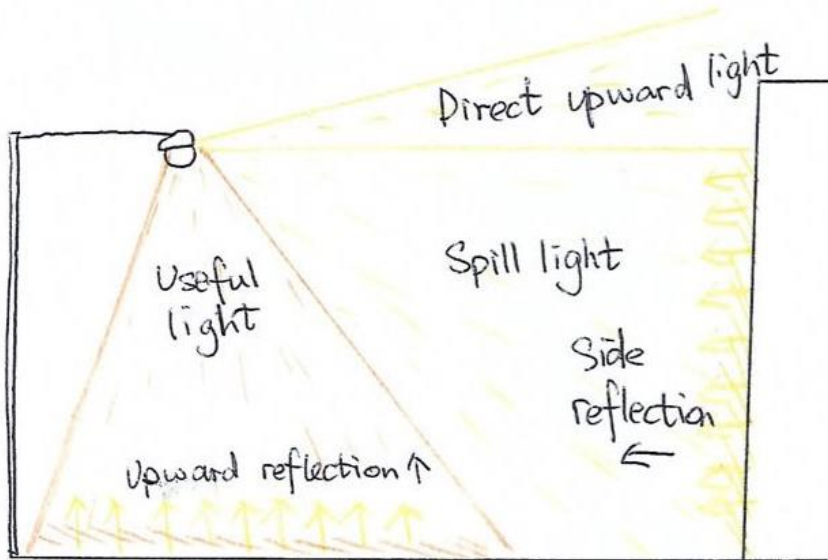 Direct upward light
Useful
light
Spill light
Side
reflection
←
Upward reflection ↑